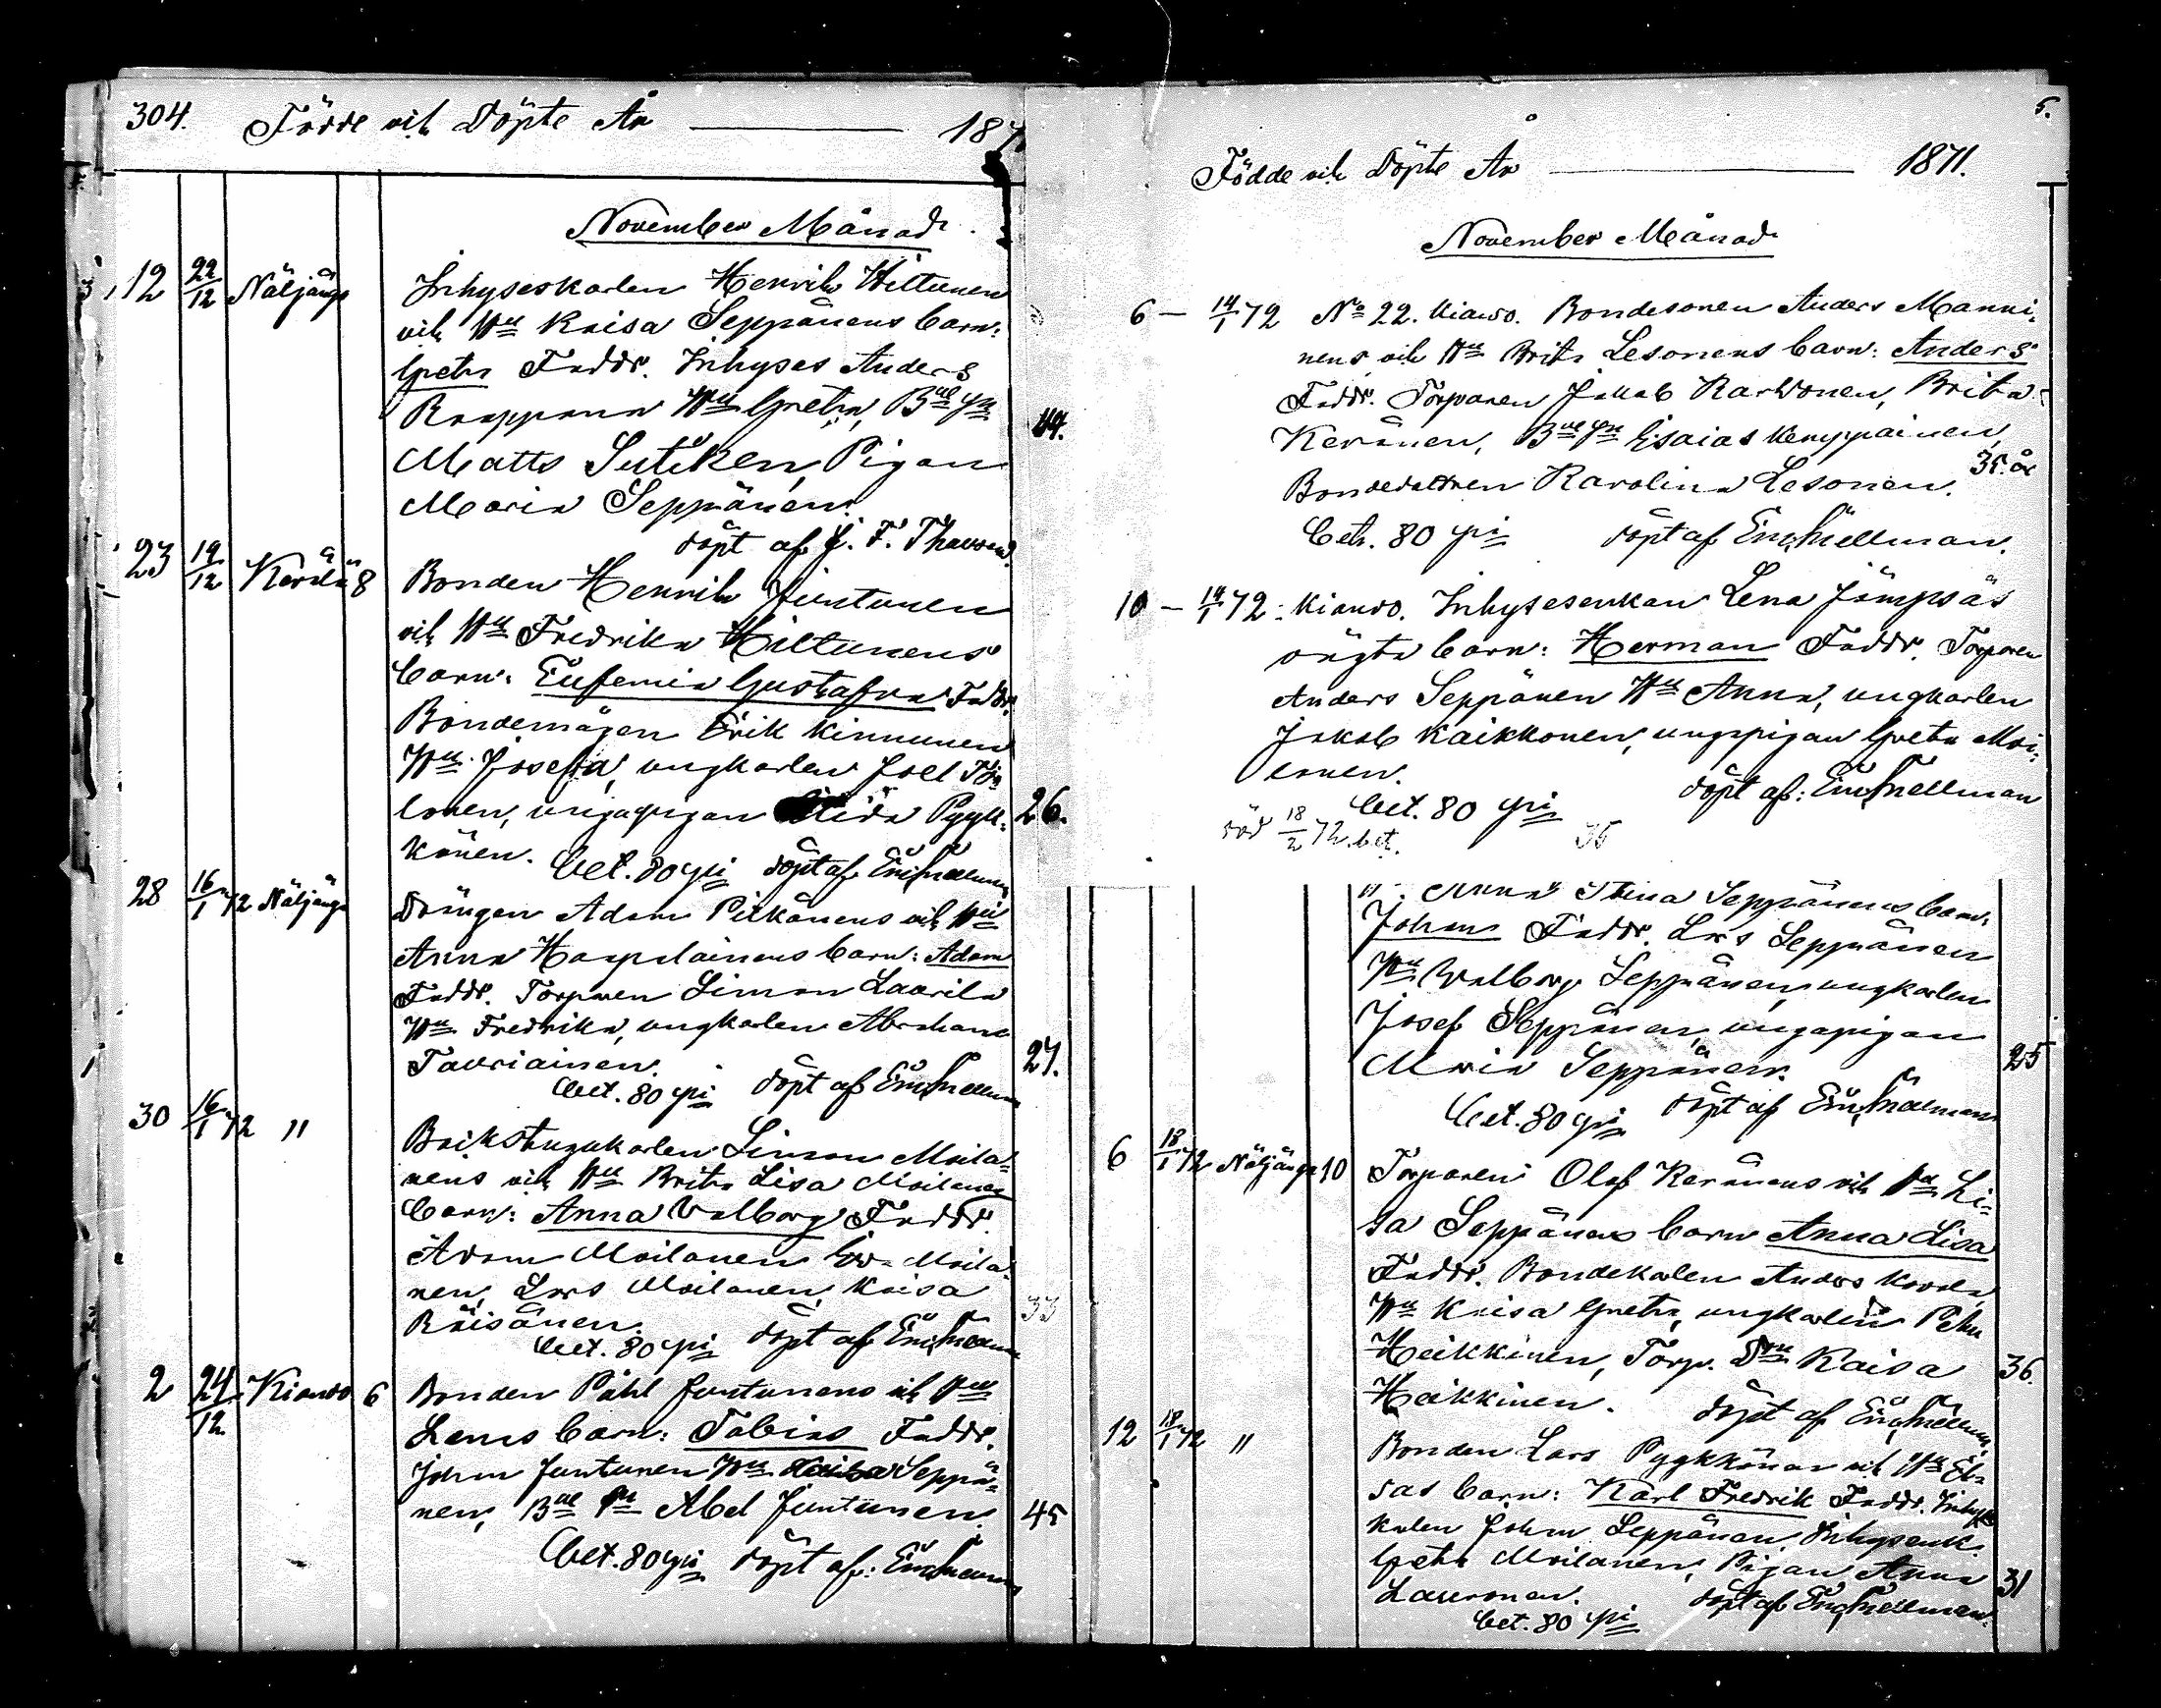 304. Födde och Döpte År 1871
November Månad.
12 22/12 Näljänge Inhyseskarlen Henrik Hiltunen
och Hu Kaisa Seppänens barn:
Greta Faddr. Inhyses Anders
Hu Greta, Bde
Matts Pigan
Maria Seppänen.
döpt af J. F. Thauvon
23 19/12 8 Bonden Henrik Juntunen
och Hu Fredrika Hiltunens
barn: Eufemia Gustafva Faddr.
Bondemågen Erik Kinnunen
Hu Josefa, ungkarlen Joel
lonen, ungapigan Pyyk-
26.
könen. bet. 80 pi döpt af Em Snellman
28 16/1 72 Näljänge Drängen Adam Pitkänens och Hu
Anna Haapalainens barn: Adam
Faddr. Torparen Simon Laurila
Hu Fredrika, ungkarlen Abraham
Tauriainen. 27.
bet. 80 pi döpt af Em Snellman
30 16/1 72 " Backstugukarlen Simon Moila-
nens och Hu Brita Lisa Moilanens
barn: Anna Valborg Faddr.
Adam Moilanen Eva Moila-
nen, Lars Moilanen, Kaisa 33
Räisänen.
bet. 80 pi döpt af Em Snellman
2 24/12 Kiando 6 Bonden Påhl Juntunens och Hu
Lenas barn: Tobias Faddr.
Johan Juntunen Hu Kaisa Seppä-
nen, Bde Abel Juntunen. 45
bet. 80 pi döpt af: Em Snellman
5.
Födde och Döpte År 1871.
November Månad
6 — 14/1 72 No 22. Kiando. Bondesonen Anders Manni-
nens och Hu Brita Lesonens barn: Anders
Faddr. Torparen Jakob Karvonen, Brita
44. Keränen, Bde Esaias Kemppainen,
Bondedottren Karolina Lesonen. 35 år
bet. 80 pi döpt af Em Snellman.
10 — 14/1 72: Kiando. Inhysesenkan Lena Jämpsäs
oägta barn: Herman Faddr. Torparen
Anders Seppänen Hu Anna, ungkarlen
Jakob Kaikkonen, ungpigan Greta Moi-
lanen. döpt af: Em Snellman
bet. 80 pi
död 18/2 72. bet. 35
Anna Stina Seppänens barn:
Johan Faddr. Lars Seppänen
Hu Valborg Seppänen, ungkarlen
Josef Seppänen, ungapigan
Maria Seppänen. 25
bet. 80 pi döpt af Em Snellman
6 18/1 72 Näljänge 10 Torparen Olof Keränens och Hu Li-
sa Seppänens barn Anna Lisa
Faddr. Bondekarlen Anders
Hu Kaisa Greta, ungkarlen Petter
Heikkinen, Torp. Kaisa 36.
Heikkinen. döpt af Em Snellman,
12 18/1 72 " Bonden Lars Pyykkönen och Hu El-
sas barn: Karl Fredrik Faddr. Inhyses
karlen Johan Seppänen, Inhysenk.
Greta Moilanen, Pigan Anna 31
Lauronen. döpt af Em Snellman.
bet. 80 pi